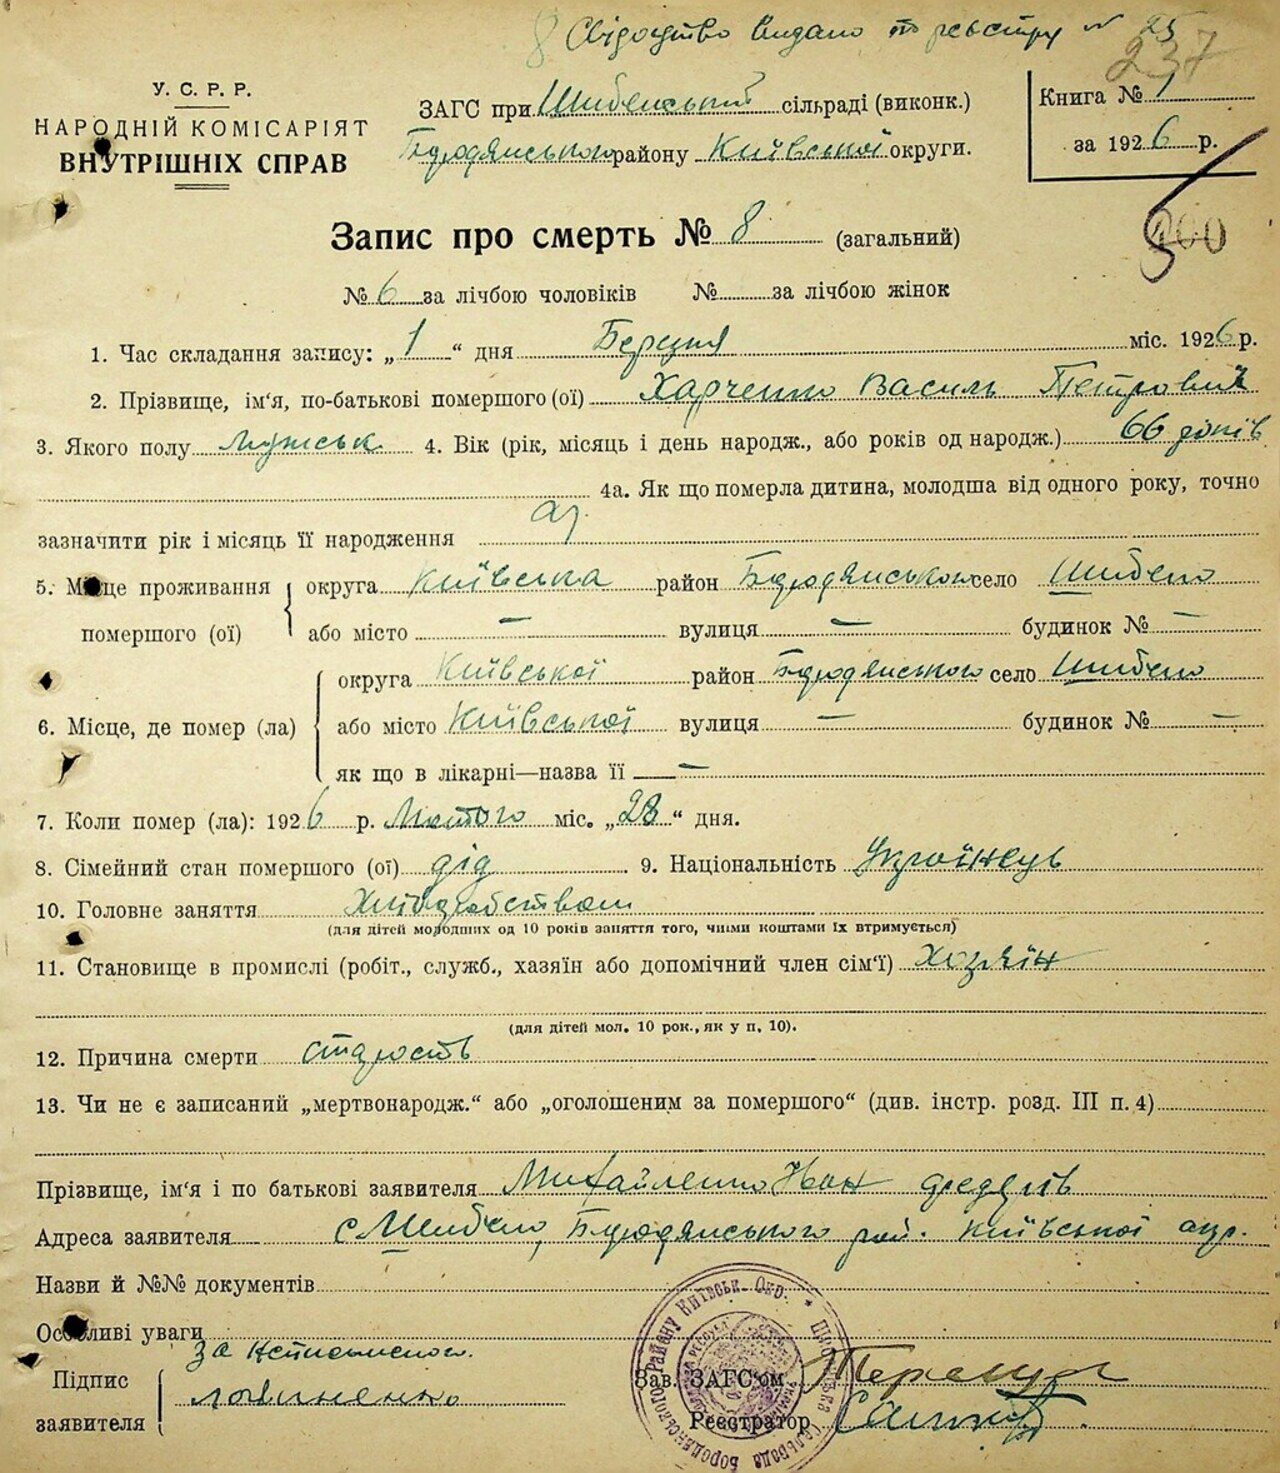 8 Свідоцтво видано по реєстру № 25
237
У. С. Р. Р.
НАРОДНІЙ КОМІСАРІЯТ
ВНУТРІШНІХ СПРАВ
ЗАГС при Шибенській сільраді (виконк.)
Бородянського району Київської округи.
Книга № 1
за 1926 р.
Запис про смерть № 8 (загальний)
№ 6 за лічбою чоловіків № за лічбою жінок
1. Час складання запису: „1“ дня Березня міс. 1926 р.
2. Прізвище, ім'я, по-батькові помершого (ої) Харченко Василь Петрович
3. Якого полу мужськ 4. Вік (рік, місяць і день народж., або років од народж.) 66 років
4а. Як що померла дитина, молодша від одного року, точно
зазначити рік і місяць її народження
5. Місце проживання помершого (ої) округа Київська район Бородянського село Шибено
або місто — вулиця — будинок № —
6. Місце, де помер (ла) округа Київської район Бородянського село Шибено
або місто Київської вулиця — будинок № —
як що в лікарні—назва її —
7. Коли помер (ла): 1926 р. Лютого міс. „28“ дня.
8. Сімейний стан помершого (ої) дід 9. Національність Українець
10. Головне заняття Хліборобством
(для дітей молодших од 10 років заняття того, чиїми коштами їх втримується)
11. Становище в промислі (робіт., служб., хазяїн або допомічний член сім'ї) Хозяїн
(для дітей мол. 10 рок., як у п. 10).
12. Причина смерти старость
13. Чи не є записаний „мертвонародж.“ або „оголошеним за помершого“ (див. інстр. розд. III п. 4)
Прізвище, ім'я і по батькові заявителя Михайленко Іван
Адреса заявителя с Шибено, Бородянського рай. Київської окр.
Назви й №№ документів
Особливі уваги
за неписьменого
Підпис
заявителя
Зав. ЗАГС'ом
Реєстратор